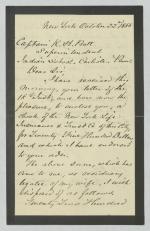 New York October 22nd 1888
Captain R. H. Pratt
Superintendent
Indian School, Carlisle, Penn
Dear Sir,
I have received this
morning your letter of the
and have now the
pleasure to enclose you, a
check of the New York Life
Insurance & Trust Co of this City
for Twenty Nine Hundred Dollars
and which I have endorsed
to your order.
The above sum, which has
come to me, as residuary
legatee of my wife, I wish
disposed of as follows
Twenty Five Hundred